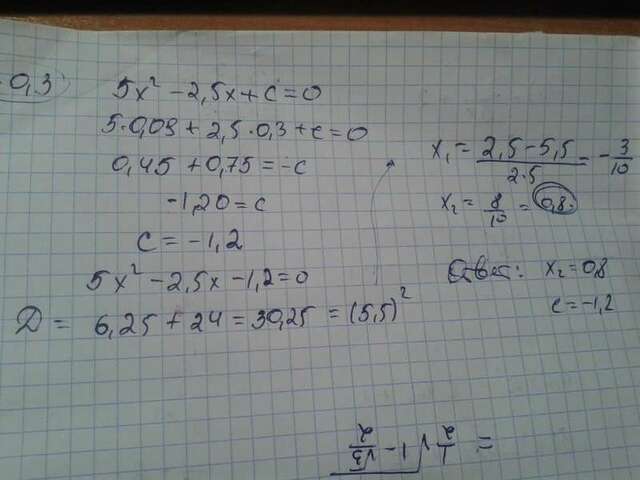 -0,3
5x² - 2,5x + c = 0
5·0,09 + 2,5·0,3 + c = 0
0,45 + 0,75 = -c
-1,20 = c
c = -1,2
5x² - 2,5x - 1,2 = 0
D = 6,25 + 24 = 30,25 = (5,5)²
x₁ = (2,5 - 5,5)/(2·5) = -3/10
x₂ = 8/10 = 0,8.
Ответ: x₂ = 0,8
c = -1,2